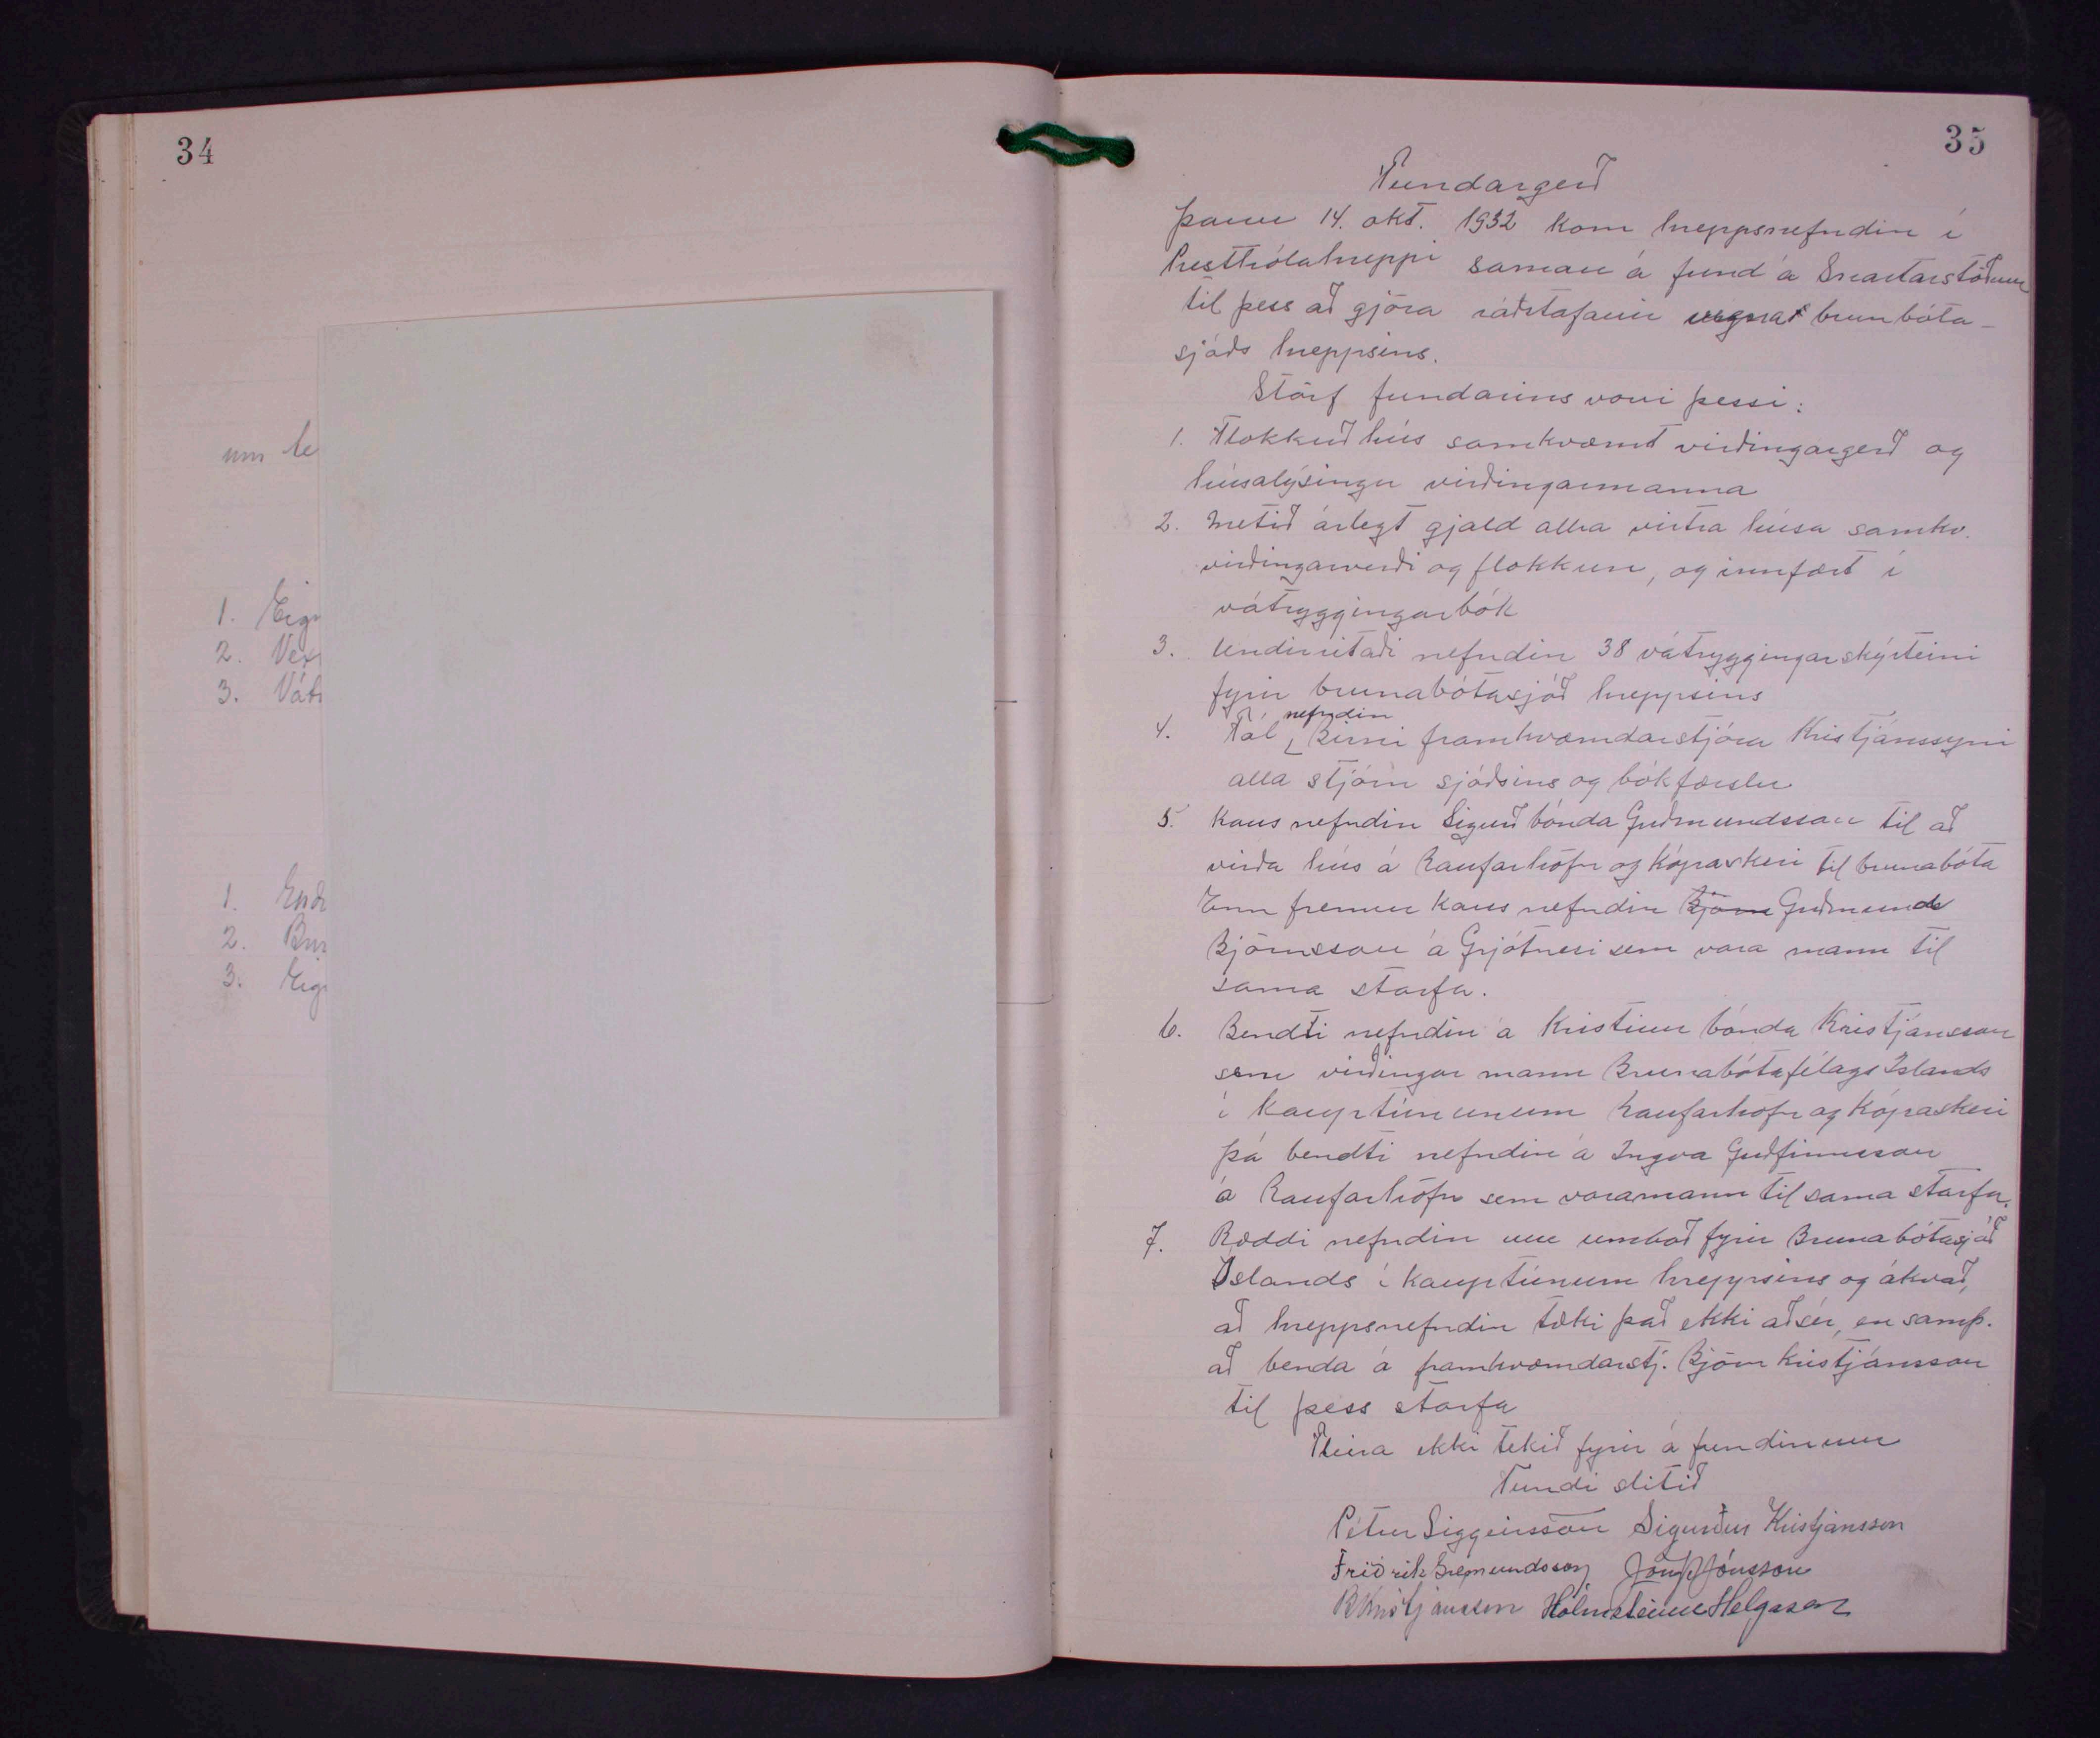 34
um le
1. Eign
2. Vext
3. Vát
1. End
2. Bru
3. Eig
35
Fundargerð
Þann 14. okt. 1932 kom hreppsnefndin í
Presthólahreppi saman á fund á Snartarstöðum
til þess að gjöra ráðstafanir vegna brunbóta-
sjóðs hreppsins.
Störf fundarins voru þessi:
1. Flokkuð hús samkvæmt virðingargerð og
húsalýsingu virðingarmanna
2. Metið árlegt gjald allra virtra húsa samkv.
virðingarverði og flokkun, og innfært í
vátryggingarbók
3. Undirritaði nefndin 38 vátryggingarskýrteini
fyrir brunabótasjóð hreppsins
4. Fól nefndin Birni framkvæmdarstjóra Kristjánssyni
alla stjórn sjóðsins og bókfærslu
5. Kaus nefndin Sigurð bónda Guðmundsson til að
virða hús á Raufarhöfn og Kópaskeri til brunabóta
Enn fremur kaus nefndin Björn Guðmund
Björnsson á Grjótnesi sem vara mann til
sama starfa.
6. Bendti nefndin á Kristinn bónda Kristjánsson
sem virðingar mann Brunabótafélags Íslands
í kauptúnunum Raufarhöfn og Kópaskeri
þá bendti nefndin á Ingva Guðfinnsson
á Raufarhöfn sem varamann til sama starfa.
7. Ræddi nefndin um umboð fyrir Brunabótasjóð
Íslands í kauptúnum hreppsins og ákvað,
að hreppsnefndin tæki það ekki að sér, en samþ.
að benda á framkvæmdarstj. Björn Kristjánsson
til þess starfa
Fleira ekki tekið fyrir á fundinum
Fundi slitið
Pétur Siggeirsson Sigurður Kristjánsson
Friðrik Sæmundsson Jón Jónsson
B Kristjánsson Hólmsteinn Helgason